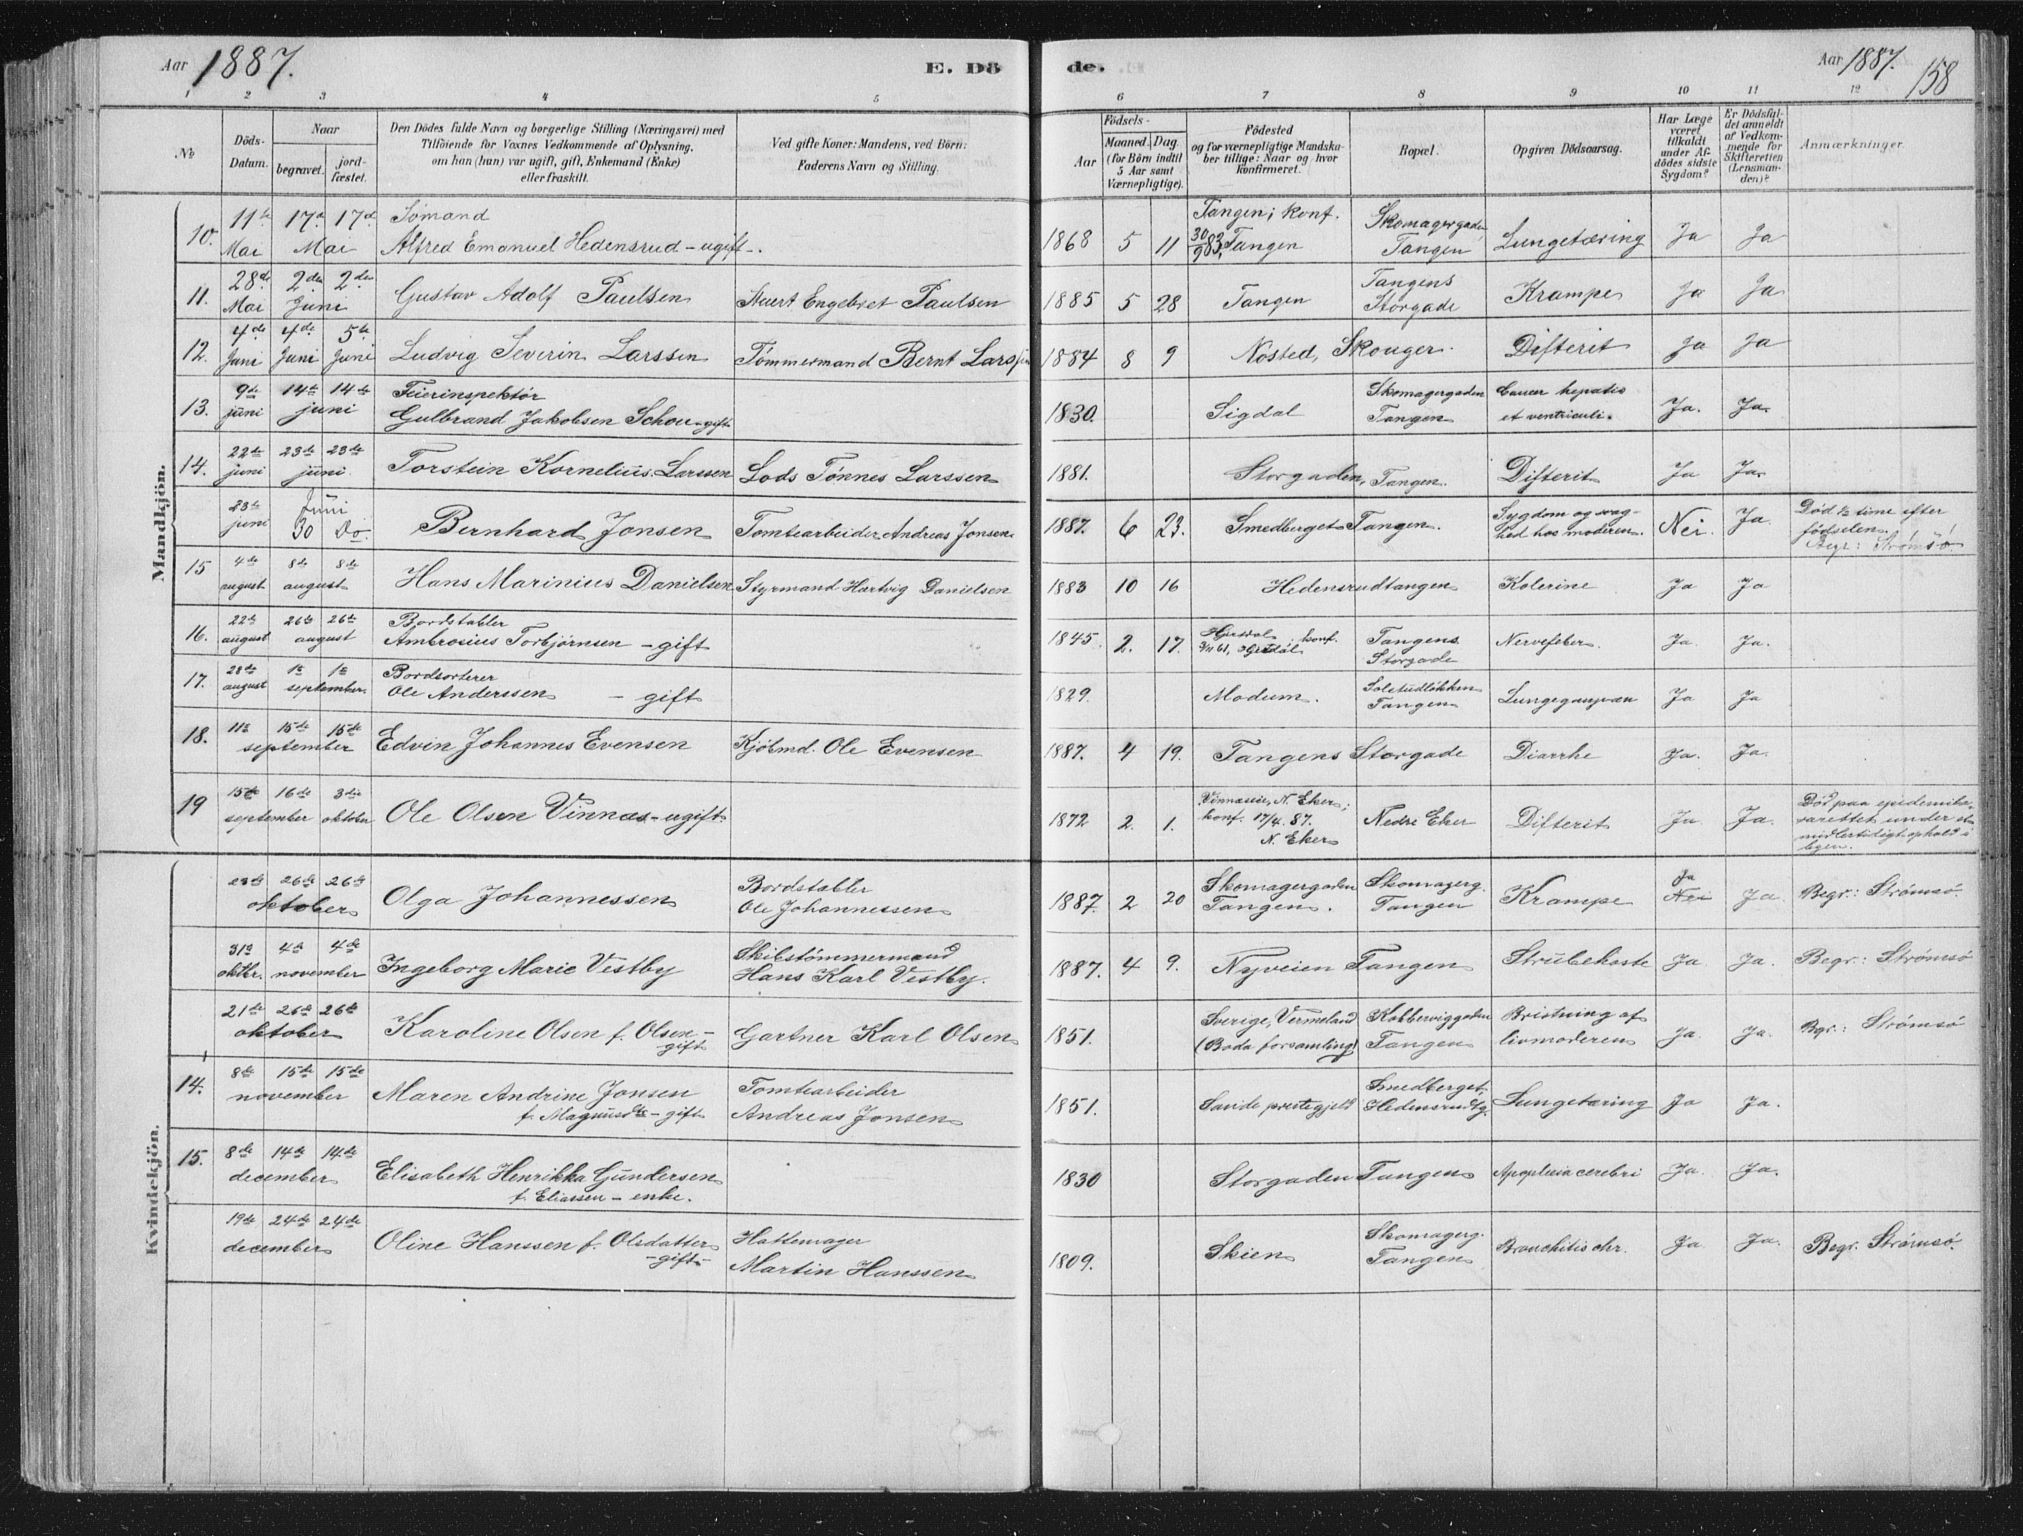 Aar 1887. E. Dö de. Aar 1887. 158
1 2 3 4 5 6 7 8 9 10 11 12
№ Döds-Datum. Naar begravet. jordfæstet. Den Dödes fulde Navn og borgerlige Stilling (Næringsvei) med Tilföiende for Voxnes Vedkommende af Oplysning, om han (hun) var ugift, gift, Enkemand (Enke) eller fraskilt. Ved gifte Koner: Mandens, ved Börn: Faderens Navn og Stilling. Födsels- Aar Maaned. Dag (for Börn indtil 5 Aar samt Værnepligtige). Födested og for værnepligtige Mandskaber tillige: Naar og hvor konfirmeret. Bopæl. Opgiven Dödsaarsag. Har Læge været tilkaldt under Afdödes sidste Sygdom? Er Dödsfaldet anmeldt af Vedkommende for Skifteretten (Lensmanden)? Anmærkninger.
Mandkjön.
10. 11te Mai 17de 17de Mai Sømand Alfred Emanuel Hedensrud - ugift -. 1868 5 11 Tangen; konf. 30/9 83, Tangen Skomagergaden Tangen Lungetæring Ja Ja
11. 28de Mai 2den 2den Juni Gustav Adolf Paulsen Engebret Paulsen 1885 5 28 Tangen Tangens Storgade Krampe Ja Ja
12. 4de Juni 4de Juni 5te Juni Ludvig Severin Larssen Tømmermand Bernt Larssen 1884 8 9 Nøsted, Skouger. Difterit Ja Ja
13. 9de juni 14de 14de juni Feierinspektør Gulbrand Jakobsen Schou - gift 1830. Sigdal Skomagergaden Tangen Cancer hepatis et ventriculi. Ja. Ja.
14. 22de juni 23de 23de juni Torstein Kornelius Larssen Lods Tønnes Larssen 1881. Storgaden, Tangen. Difterit Ja Ja.
23de juni Juni 30 Do. Bernhard Jonsen Tomtearbeider Andreas Jonsen. 1887. 6 23. Smedberget Tangen. Sygdom og svaghed hos moderen. Nei. Ja Død ½ time efter fødselen. Begr: Strømsø
15 4de august 8de 8de august Hans Marinius Danielsen Styrmand Hartvig Danielsen 1883 10 16 Hedensrudtangen Kolerine Ja Ja
16. 22de august 26de 26de august Bordstabler Ambrosius Torbjørnsen - gift 1845. 2. 17. konf. Tangens Storgade Nervefeber Ja Ja.
17. 28de august 1ste 1ste september. Bordsorterer Ole Anderssen - gift 1829. Modum. Tangen Ja Ja
18. 11te 15de 15de september Edvin Johannes Evensen Kjøbmd. Ole Evensen 1887. 4 19. Tangens Storgade Diarrhe Ja. Ja.
19 15de september 16de 3die oktober Ole Olsen Vinnæs - ugift. 1872 2. 1. N. Eker; konf. 17/4. 87. N. Eker Nedre Eker Difterit Ja Ja. Død paa epidemilazarettet under et midlertidigt ophold i byen.
Kvindekjön.
23de 26de 26de oktober Olga Johannessen Bordstabler Ole Johannessen 1887. 2 20 Skomagergaden Tangen. Skomagerg. Tangen Krampe Ja Nei Ja Begr: Strømsø.
31te oktbr. 4de 4de november Ingeborg Marie Vestby Skibstømmermand Hans Karl Vestby. 1887. 4 9. Nyveien Tangen Strubehoste Ja. Ja. Begr: Strømsø
21de 26de 26de oktober Karoline Olsen f. Olsen - gift Gartner Karl Olsen 1851. Sverige, Vermeland (Boda forsamling) Kobberviggaden Tangen Bristning af livmoderen Ja. Ja. Bgr: Strømsø
14. 8de 15de 15de november Maren Andrine Jonsen f. Magnusdtr - gift Tomtearbeider Andreas Jonsen 1851. præstegjeld Smedberget, Hedensrudtg. Lungetæring Ja Ja.
15. 8de 14de 14de december Elisabeth Henrikka Gundersen f. Eliassen - enke. 1830 Storgaden Tangen Apoplexia cerebri Ja. Ja.
19de 24de 24de december Oline Hanssen f. Olsdatter - gift - Hattemager Martin Hanssen 1809. Skien Skomagerg. Tangen Bronchitis chr. Ja Ja. Begr. Strømsø.